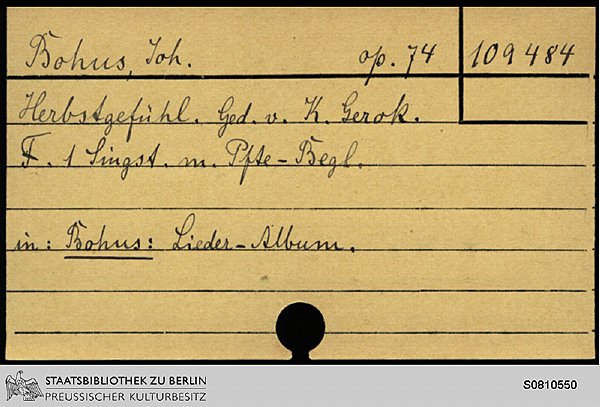 Bohus, Joh. op. 74 109484
Herbstgefühl. Ged. v. K. Gerok.
F. 1 Singst. m. Pfte-Begl.
in: Bohus: Lieder-Album.
STAATSBIBLIOTHEK ZU BERLIN
PREUSSISCHER KULTURBESITZ
S0810550